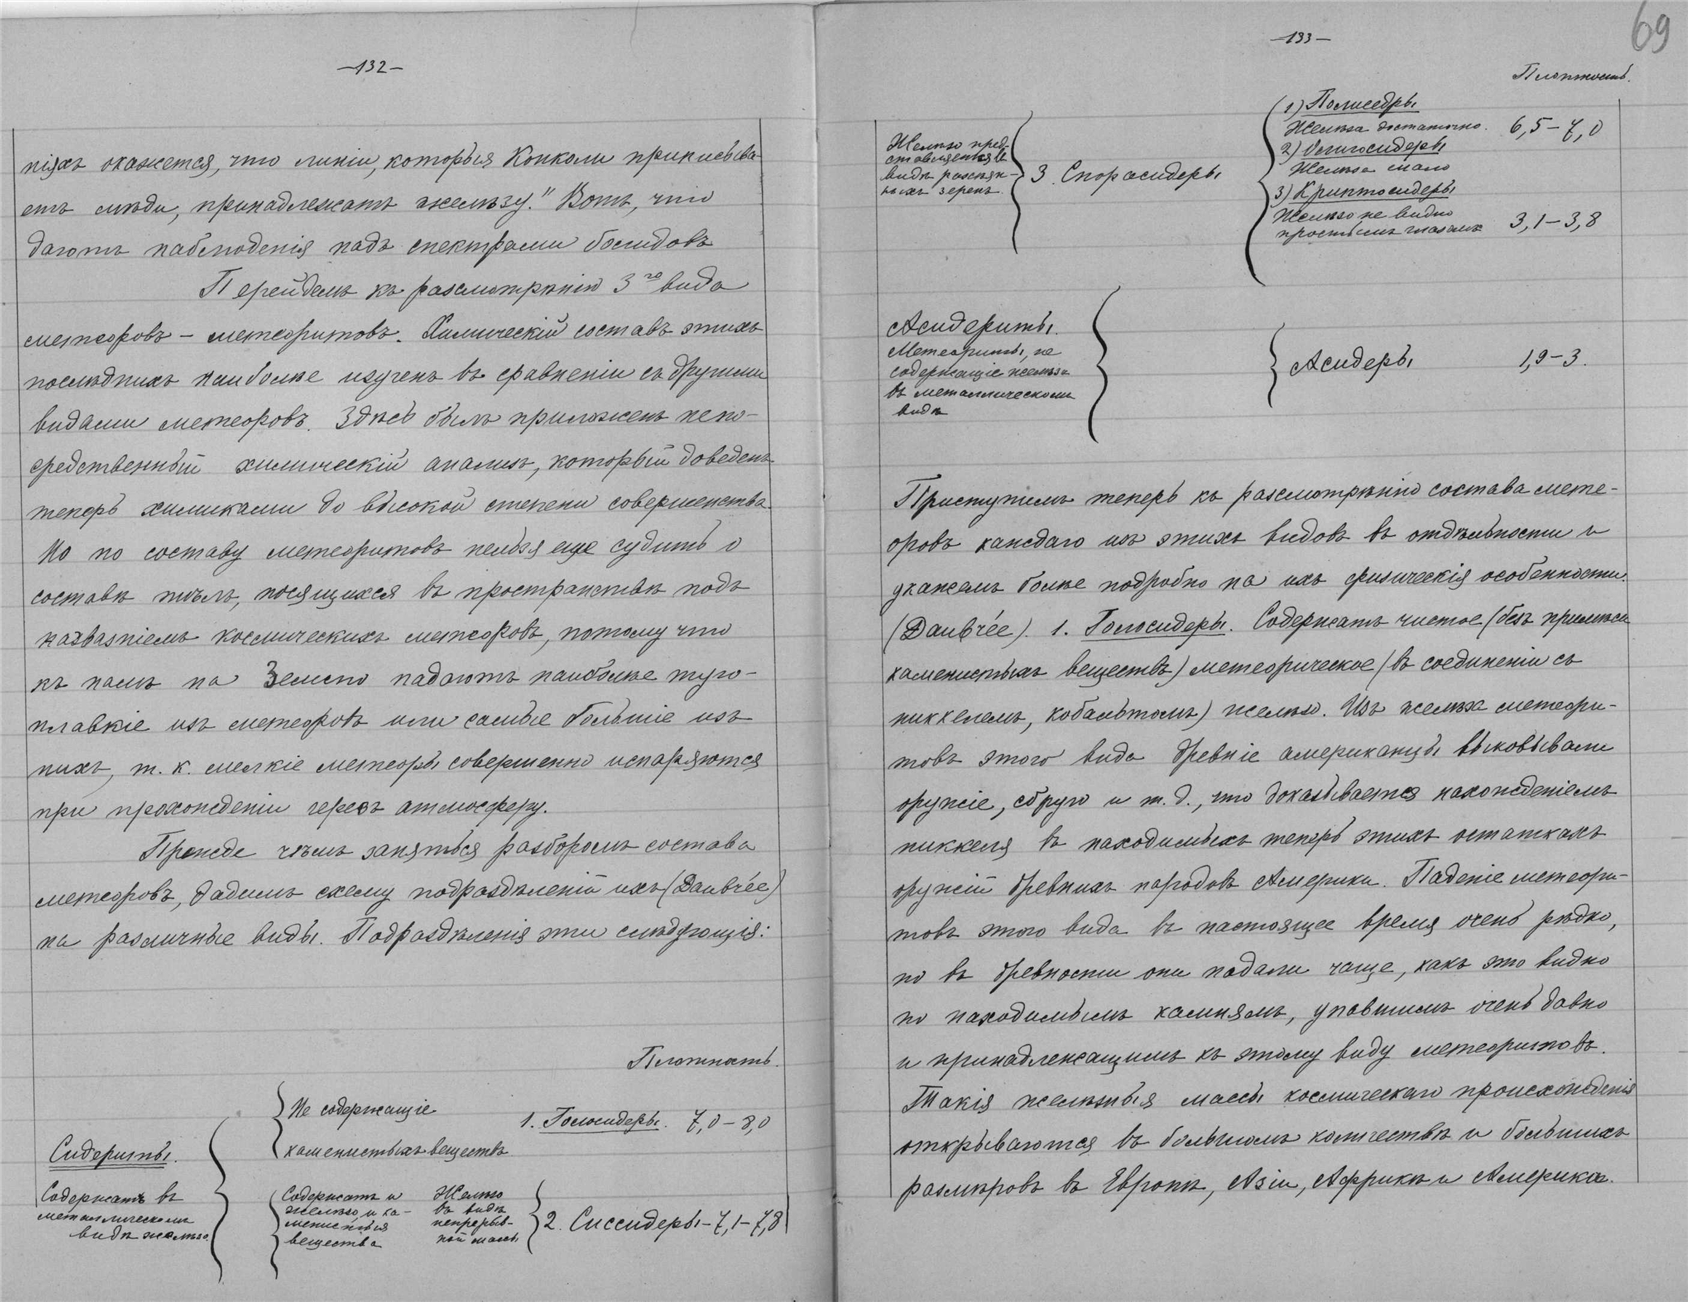 —132—
ніяхъ окажется, что линіи, которыя Конколи приписыва-
етъ мѣди, принадлежатъ желѣзу." Вотъ, что
даютъ наблюденія надъ спектрами болидовъ
Перейдемъ къ разсмотрѣнію 3го вида
метеоровъ – метеоритовъ. Химическій составъ этихъ
послѣднихъ наиболѣе изученъ въ сравненіи съ другими
видами метеоровъ. Здѣсь былъ приложенъ непо-
средственный химическій анализъ, который доведенъ
теперь химиками до высокой степени совершенства.
Но по составу метеоритовъ нельзя еще судить о
составѣ тѣлъ, носящихся въ пространствѣ подъ
названіемъ космическихъ метеоровъ, потому что
къ намъ на Землю падаютъ наиболѣе туго-
плавкіе изъ метеоровъ или самые большіе изъ
нихъ, т. к. мелкіе метеоры совершенно испаряются
при прохожденіи черезъ атмосферу.
Прежде чѣмъ заняться разборомъ состава
метеоровъ, дадимъ схему подраздѣленій ихъ (Daubrée)
на различные виды. Подраздѣленія эти слѣдующія:
Плотность.
Сидериты.
Содержатъ въ
металлическомъ
видѣ желѣзо
Не содержащіе
каменистыхъ веществъ
1. Голосидеры. 7,0–8,0
Содержатъ и
желѣзо и ка-
менистыя
вещества
Желѣзо
въ видѣ
непрерыв-
ной массы
2. Сиссидеры–7,1–7,8
—133—
69
Плотность.
Желѣзо пред-
ставляется въ
видѣ разсѣян-
ныхъ зеренъ.
3. Спорасидеры
1) Полисидеры
Желѣза достаточно.
6,5–7,0
2) Олигосидеры
Желѣза мало
3) Криптосидеры
Желѣзо не видно
простымъ глазомъ
3,1–3,8
Асидериты.
Метеориты, не
содержащіе желѣза
въ металлическомъ
видѣ
Асидеры
1,9–3.
Приступимъ теперь къ разсмотрѣнію состава мете-
оровъ каждаго изъ этихъ видовъ въ отдѣльности и
укажемъ болѣе подробно на ихъ физическія особенности
(Daubrée). 1. Голосидеры. Содержатъ чистое (безъ примѣси
каменистыхъ веществъ) метеорическое (въ соединеніи съ
никкелемъ, кобальтомъ) желѣзо. Изъ желѣза метеори-
товъ этого вида древніе американцы выковывали
оружіе, сбрую и т. д., что доказывается нахожденіемъ
никкеля въ находимыхъ теперь этихъ остаткахъ
оружій древнихъ народовъ Америки. Паденіе метеори-
товъ этого вида въ настоящее время очень рѣдко,
но въ древности они падали чаще, какъ это видно
по находимымъ камнямъ, упавшимъ очень давно
и принадлежащимъ къ этому виду метеоритовъ.
Такія желѣзныя массы космическаго происхожденія
открываются въ большомъ количествѣ и большихъ
размѣровъ въ Европѣ, Азіи, Африкѣ и Америкѣ.